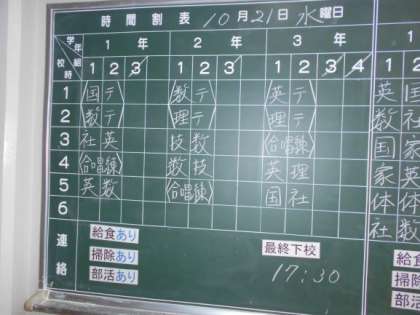 時間割表 10月21日水曜日
学年 組 校時 1年 2年 3年
1 2 3 1 2 3 1 2 3 4
1 〈国テ〉 〈数テ〉 〈英テ〉 英国
2 〈数テ〉 〈理テ〉 〈理テ〉 数社
3 社英 技数 〈合唱練〉 国家
4 〈合唱練〉 数技 英理 家英
5 英数 〈合唱練〉 国社 体体
6 社数
連絡
給食あり 最終下校 給食
掃除あり 17:30 掃除
部活あり 部活